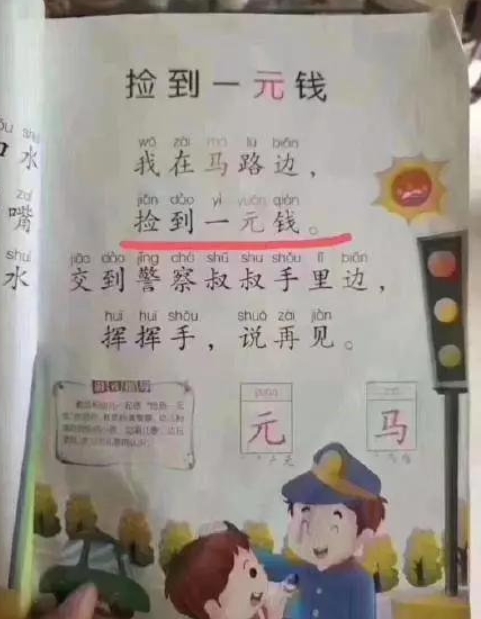 捡到一元钱
wǒ zài mǎ lù biān
我在马路边，
jiǎn dào yì yuán qián
捡到一元钱。
jiāo dào jǐng chá shū shu shǒu lǐ biān
交到警察叔叔手里边，
huī huī shǒu shuō zài jiàn
挥挥手，说再见。
水
zuǐ
嘴
shuǐ
水
yuán
元
马